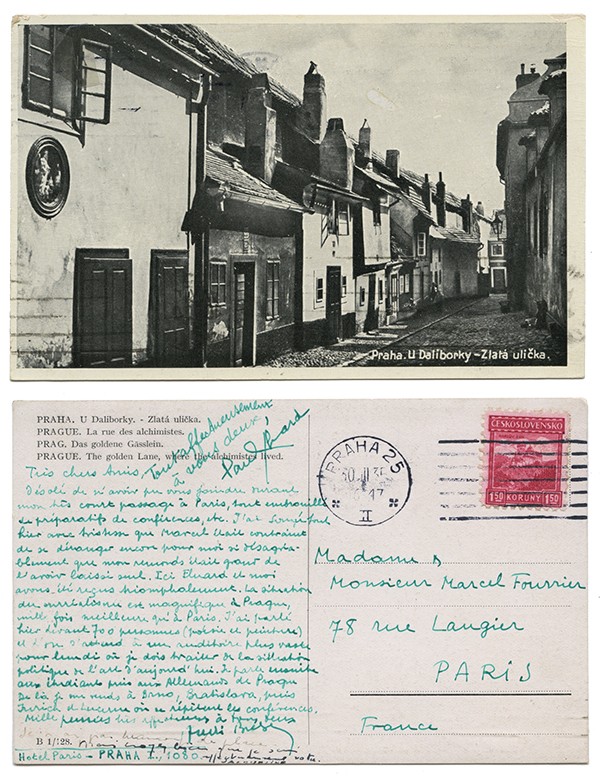 Praha. U Daliborky - Zlatá ulička.
PRAHA. U Daliborky. - Zlatá ulička.
PRAGUE. La rue des alchimistes.
PRAG. Das goldene Gässlein.
PRAGUE. The golden Lane, where the alchimistes lived.
Tout affectueusement
à vous deux!
Paul Eluard
Très chers Amis,
Désolé de n'avoir pu vous joindre durant
mon très court passage à Paris, tout
de préparatifs de conférences, etc. J'ai songé
hier avec tristesse que Marcel était contraint
de se déranger encore pour moi si désagréa-
blement que mon
l'avoir laissé seul. Ici Eluard et moi
avons été reçus triomphalement. La situation
du surréalisme est magnifique à Prague,
mille fois meilleure qu'à Paris. J'ai parlé
hier devant 700 personnes (poésie et peinture)
et l'on s'attend à un auditoire plus vaste
pour lundi où je dois traiter de la situation
politique de l'art d'aujourd'hui. Je parle ensuite
aux étudiants puis aux Allemands de Prague
De là je me rends à Brno, Bratislava, puis
Zurich et Lucerne où se répètent les conférences.
Mille pensées très affectueuses à tous deux
André Breton
B 1/128.
Hotel Paris - PRAHA I., 1080
PRAHA 25
30.III.35
17
II
ČESKOSLOVENSKO
1·50 KORUNY 1·50
Madame &
Monsieur Marcel Fourrier
78 rue Laugier
PARIS
France